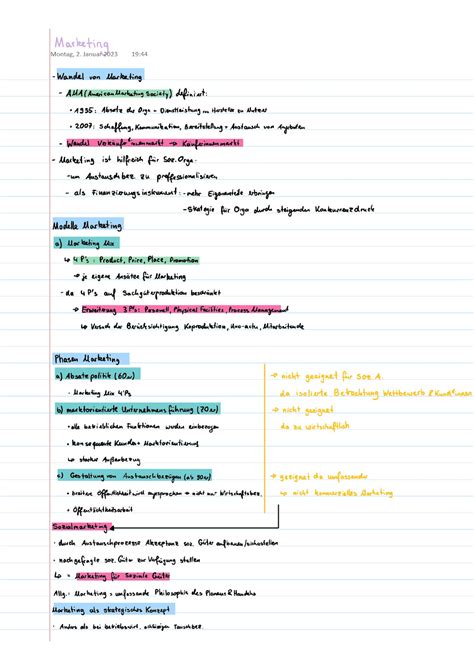 Marketing
Montag, 2. Januar 2023 19:44
- Wandel von Marketing
- AMA (American Marketing Society) definiert:
• 1935: Absatz der Orga - Dienstleistung von Hersteller zu Nutzer
• 2007: Schaffung, Kommunikation, Bereitstellung + Austausch von Angeboten
- Wandel Verkäufer*innenmarkt → Käufer*innenmarkt
- Marketing ist hilfreich für Soz. Orga.
- um Austauschbez. zu professionalisieren
- als Finanzierungsinstrument: - mehr Eigenanteile erbringen
- Strategie für Orga durch steigenden Konkurrenzdruck
Modelle Marketing
a) Marketing Mix
↳ 4 P's: Product, Price, Place, Promotion
→ je eigene Ansätze für Marketing
- da 4 P's auf Sachgüterproduktion beschränkt
→ Erweiterung 3 P's: Personell, Physical Facilities, Process Management
↳ Versuch der Berücksichtigung Koproduktion, Uno-actu, Mitarbeitende
Phasen Marketing
a) Absatzpolitik (60er)
• Marketing Mix 4 P's
→ nicht geeignet für Soz. A.
da isolierte Betrachtung Wettbewerb & Kund*innen
b) marktorientierte Unternehmensführung (70er)
• alle betrieblichen Funktionen werden einbezogen
• konsequente Kunden + Marktorientierung
↳ starker Außenbezug
→ nicht geeignet
da zu wirtschaftlich
c) Gestaltung von Austauschbezügen (ab 90er)
• breiten Öffentlichkeit wird entsprochen → nicht nur Wirtschaftsbez.
• Öffentlichkeitsarbeit
→ geeignet da umfassender
↳ nicht kommerzielles Marketing
Sozialmarketing
• durch Austauschprozesse Akzeptanz soz. Güter aufbauen/sicherstellen
• nachgefragte soz. Güter zur Verfügung stellen
↳ = Marketing für Soziale Güter
Allg.: Marketing = umfassende Philosophie des Planens & Handelns
Marketing als strategisches Konzept
• Anders als bei betriebswirt.